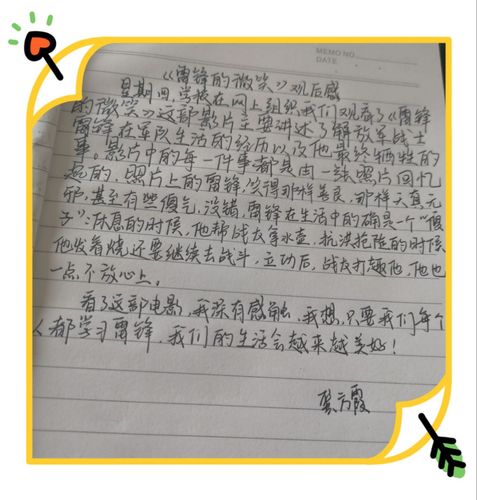 MEMO NO.
DATE
《雷锋的微笑》观后感
星期四，学校在网上组织我们观看了《雷锋
的微笑》这部影片主要讲述了解放军战士
雷锋在军队生活的经历以及他最终牺牲的
事。影片中的每一件事都是由一张照片回忆
起的，照片上的雷锋笑得那样善良，那样天真无
邪，甚至有些傻气，没错，雷锋在生活中的确是一个“傻
子”：休息的时候，他帮战友拿水壶，抗洪抢险的时候
他发着烧还要继续去战斗，立功后，战友打趣他，他也
一点不放心上。
看了这部电影，我深有感触，我想，只要我们每个
人都学习雷锋，我们的生活会越来越美好！
龚方霞